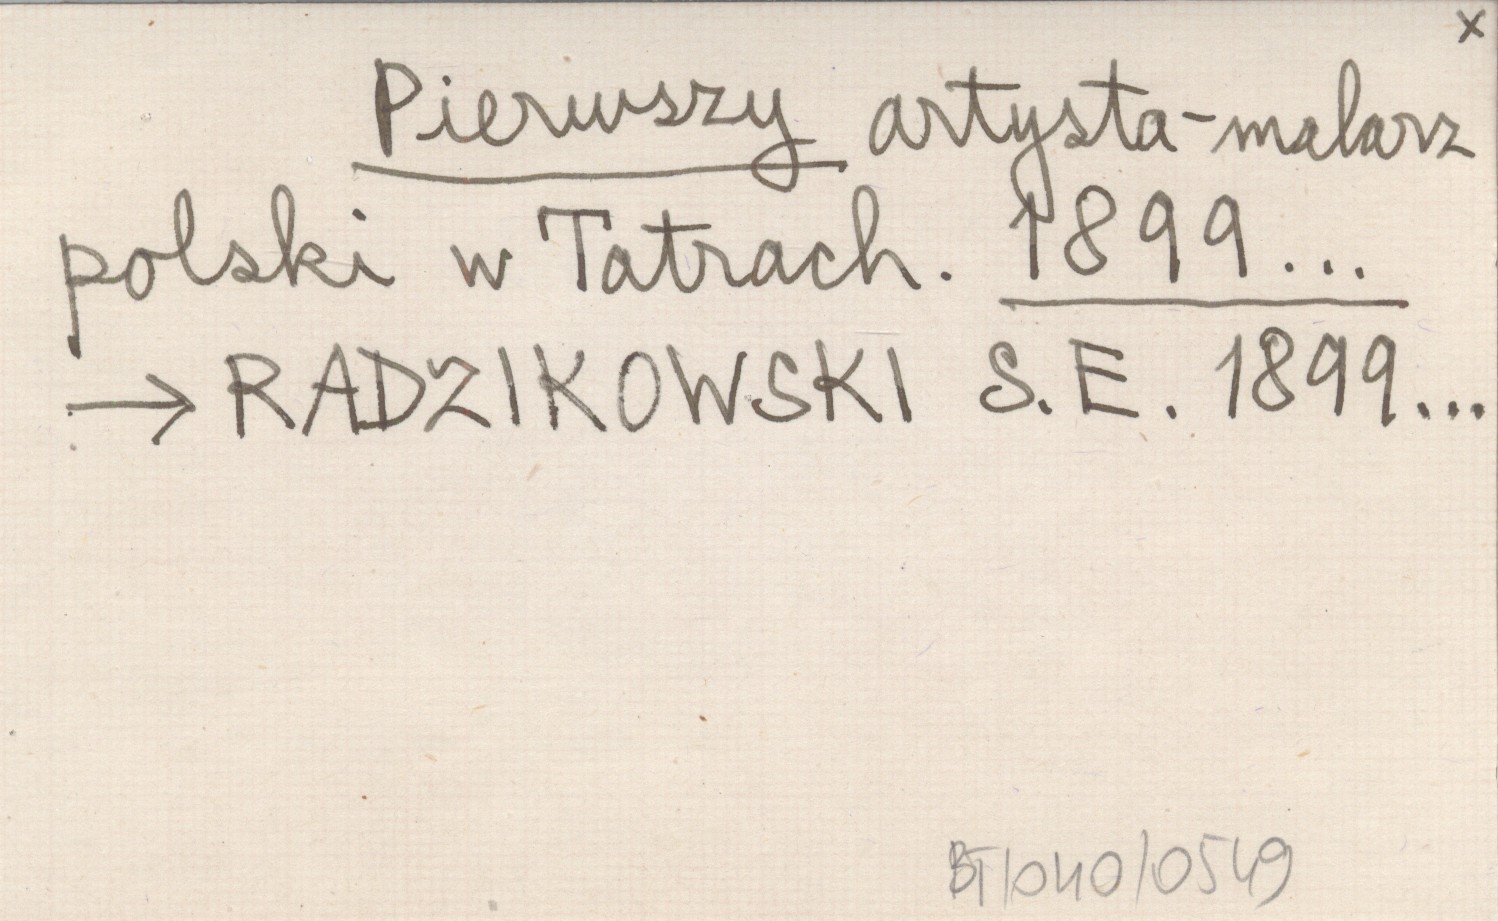 x
Pierwszy artysta-malarz
polski w Tatrach. 1899...
→ RADZIKOWSKI S.E. 1899...
BT/040/0549